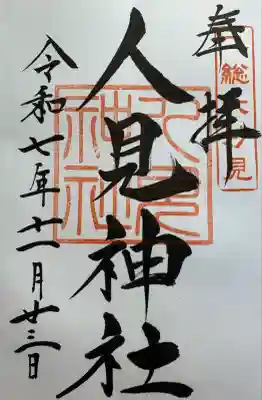 奉拝
人見神社
人見
神社
令和七年十一月廿三日